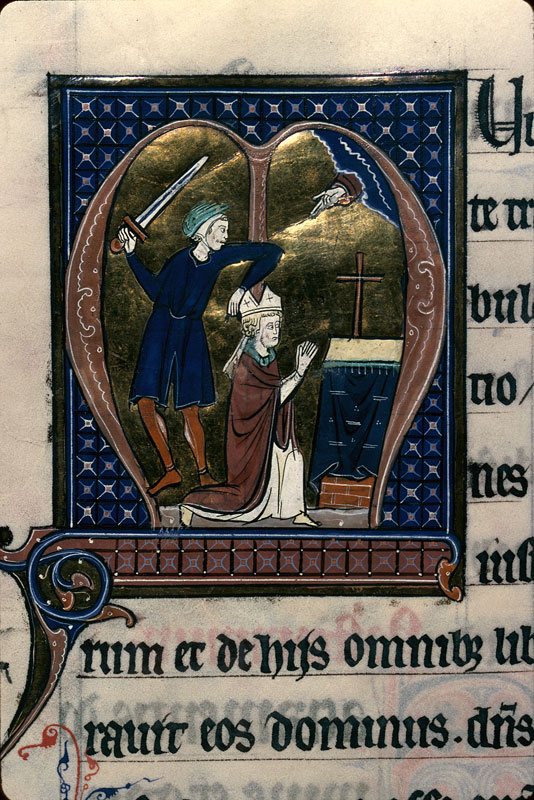 MUl
te tr
bul
tio/
nes
iust
rum et de hijs omnibꝫ lib
rauit eos dominus. dn̄s